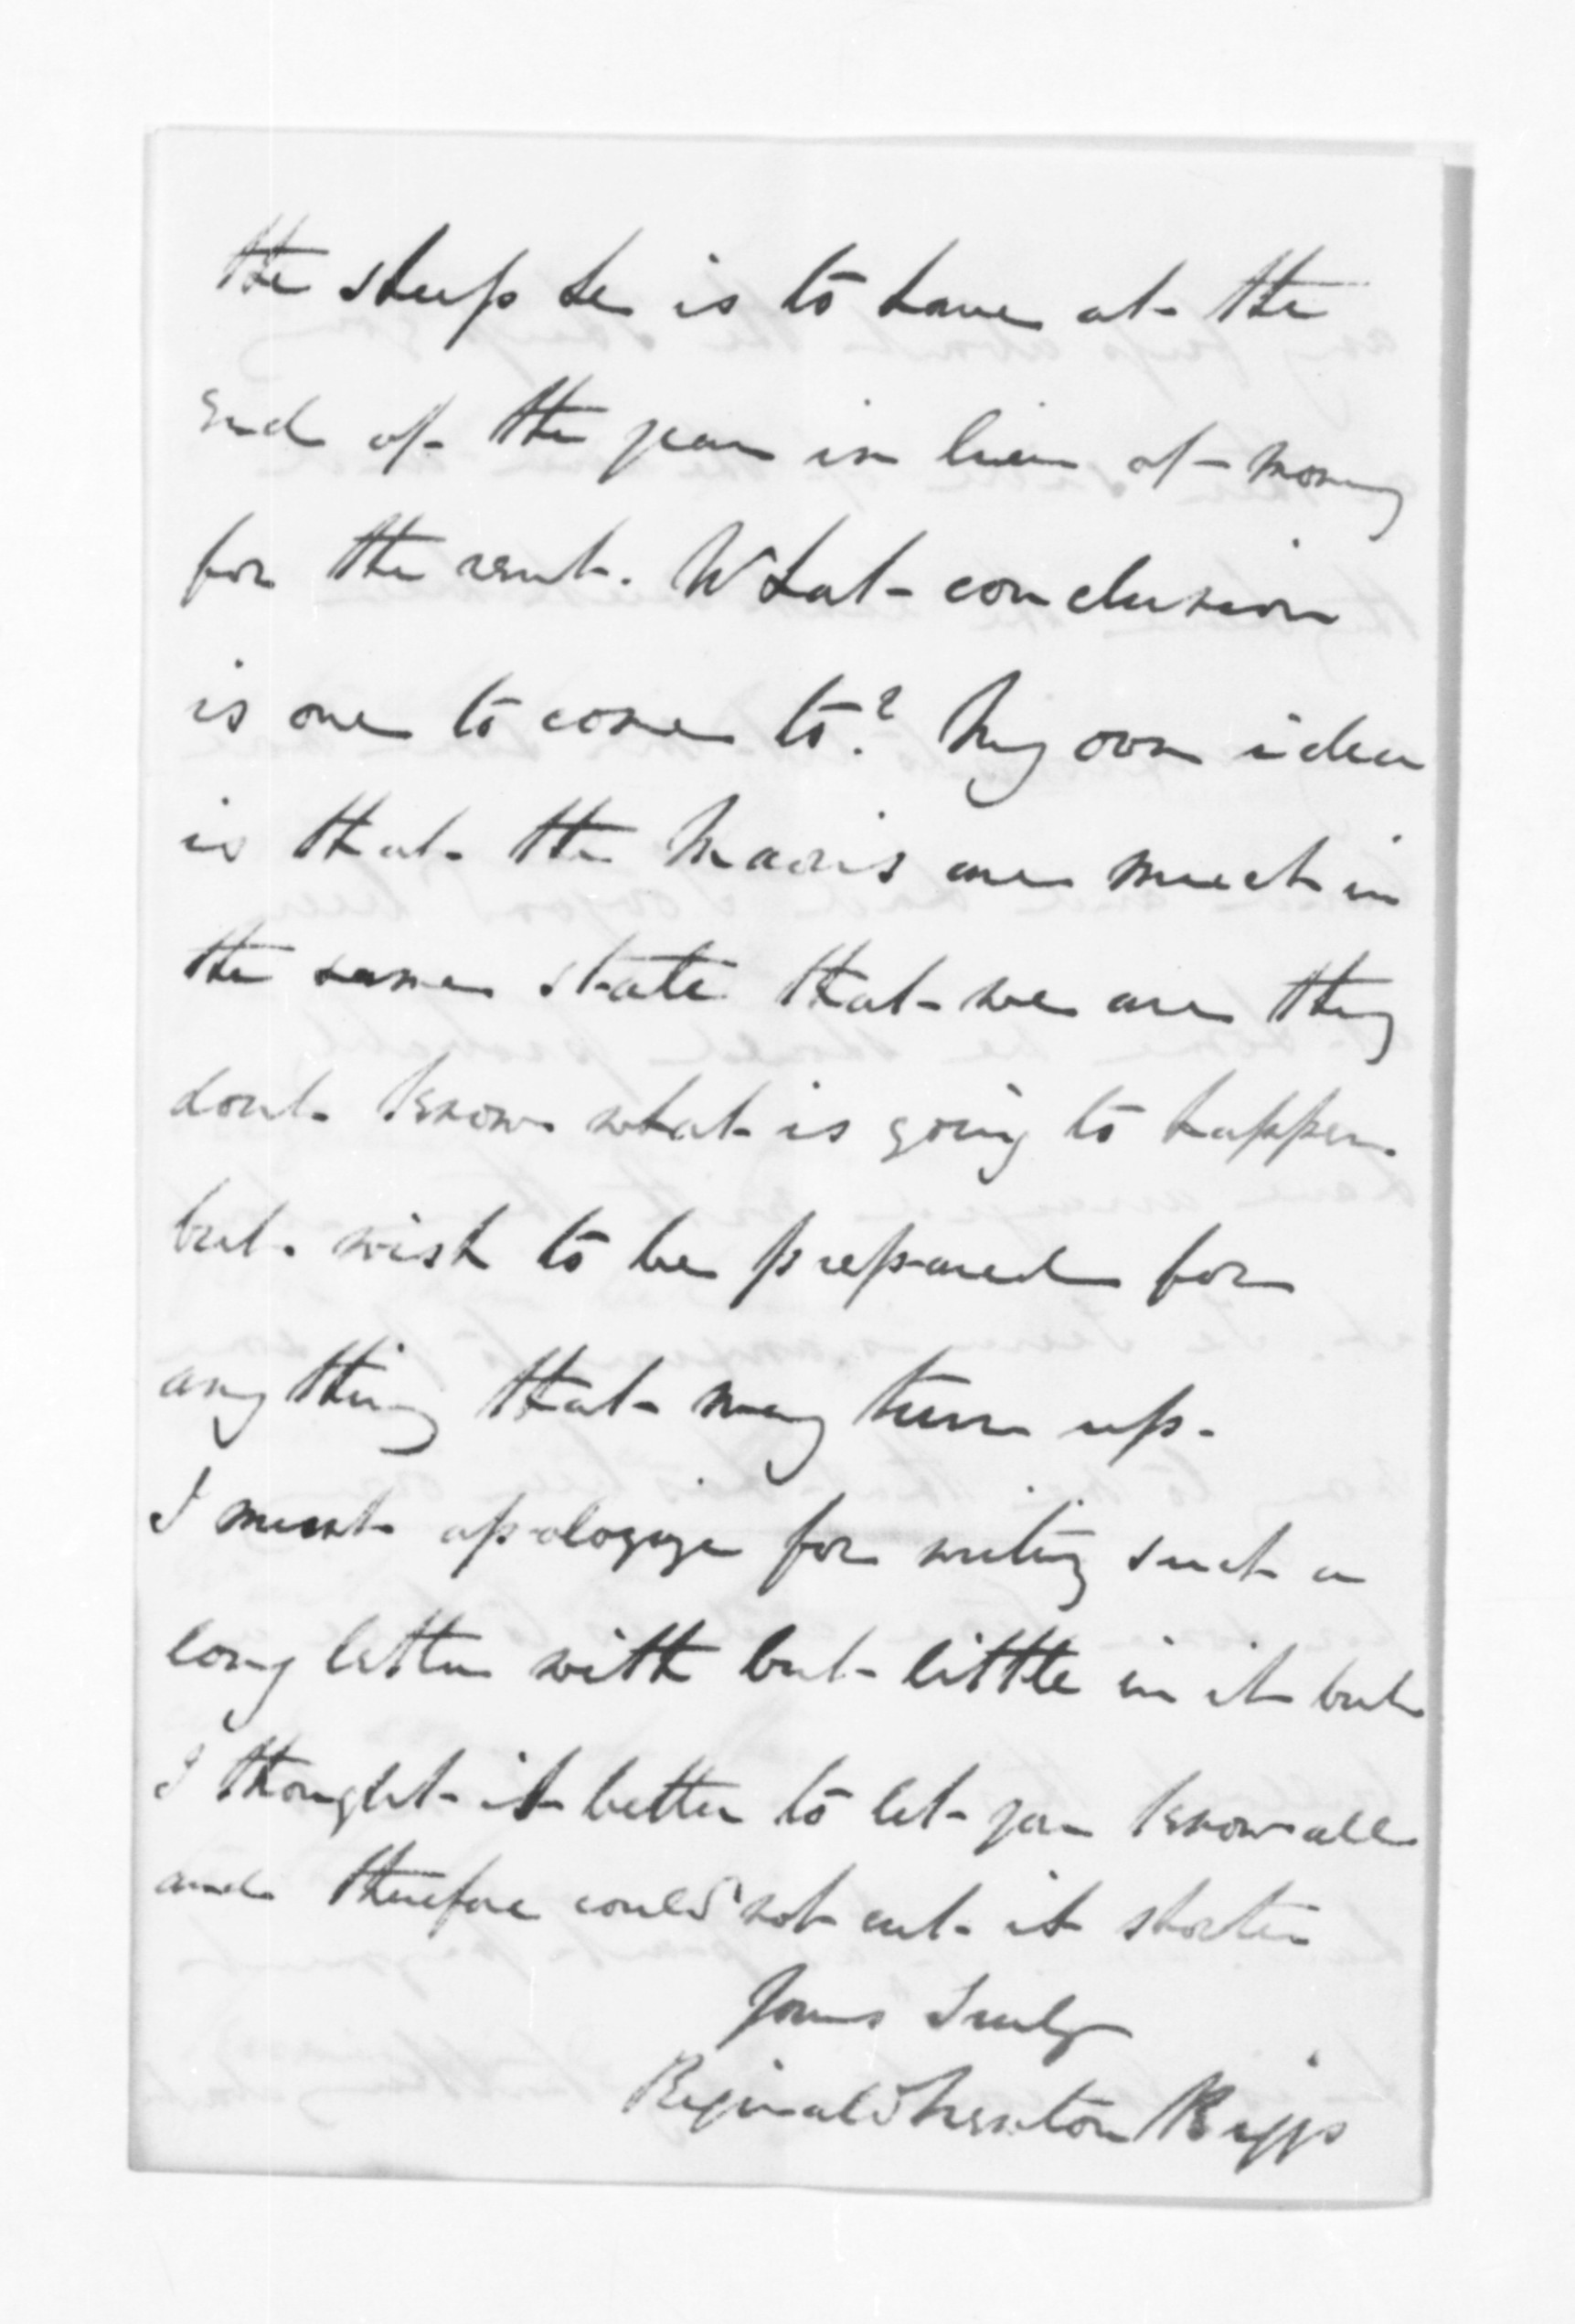 the sheep he is to have at the
end of the year in lieu of money
for the rent. What conclusion
is one to come to? My own idea
is that the Maoris are much in
the same state that we are they
dont know what is going to happen
but wish to be prepared for
any thing that may turn up.
I must apologize for writing such a
long letter with but little in it but
I thought it better to let you know all
and therefore could not cut it shorter
Yours Truly
Reginald Newton Biggs